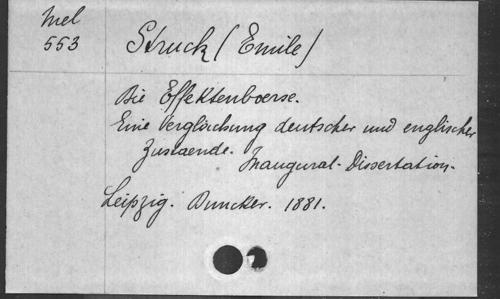 Mel
553
Struck (Emile)
Die Effektenboerse.
Eine Vergleichung deutscher und englischer
Zustaende. Inaugural-Dissertation.
Leipzig. Duncker. 1881.